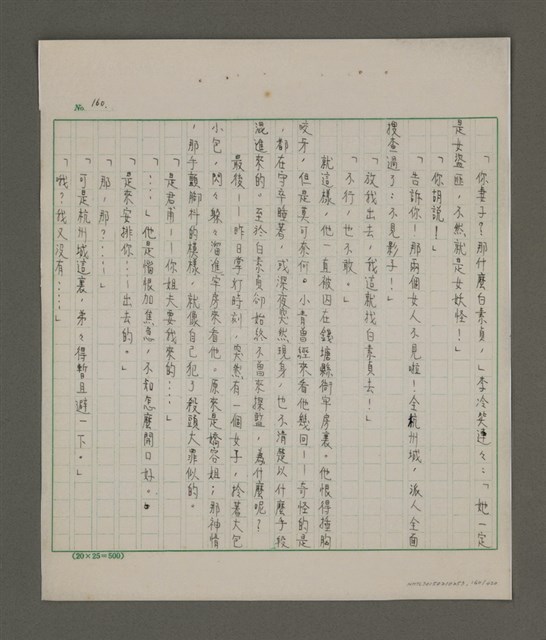 No. 160.
「你妻子？那什麼白素貞，」李冷笑連々：「她一定
是女盜匪，不然就是女妖怪！」
「你胡說！」
「告訴你！那兩個女人不見啦！全杭州城，派人全面
搜查過了：不見影子！」
「放我出去，我這就找白素貞去！」
「不行，也不敢。」
就這樣，他一直被囚在錢塘縣衙牢房裏。他恨得搥胸
咬牙，但是莫可奈何。小青曾經來看他幾回——奇怪的是
，都在守卒睡著，或深夜突然現身，也不清楚以什麼手段
混進來的。至於白素貞卻始終不曾來探監，為什麼呢？
最後——昨日掌灯時刻，突然有一個女子，拎著大包
小包，閃々躲々溜進牢房來看他。原來是嬌容姐；那神情
，那手顫腳抖的模樣，就像自己犯了殺頭大罪似的。
「是君甫——你姐夫要我來的：：」
「：：」他是惱恨加焦急，不知怎麼開口好。
「是來安排你：：出去的。」
「那，那？：：」
「可是杭州城這裏，弟々得暫且避一下。」
「哦？我又沒有：：」
(20×25=500)